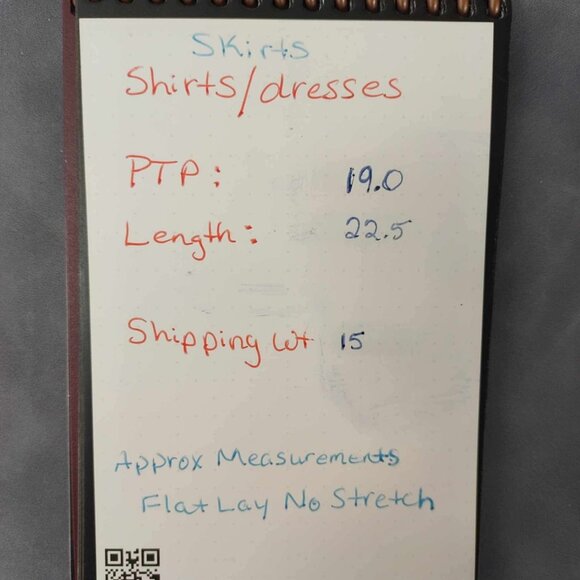 Skirts
Shirts/dresses
PTP: 19.0
Length: 22.5
Shipping Wt 15
Approx Measurements
Flat Lay No Stretch